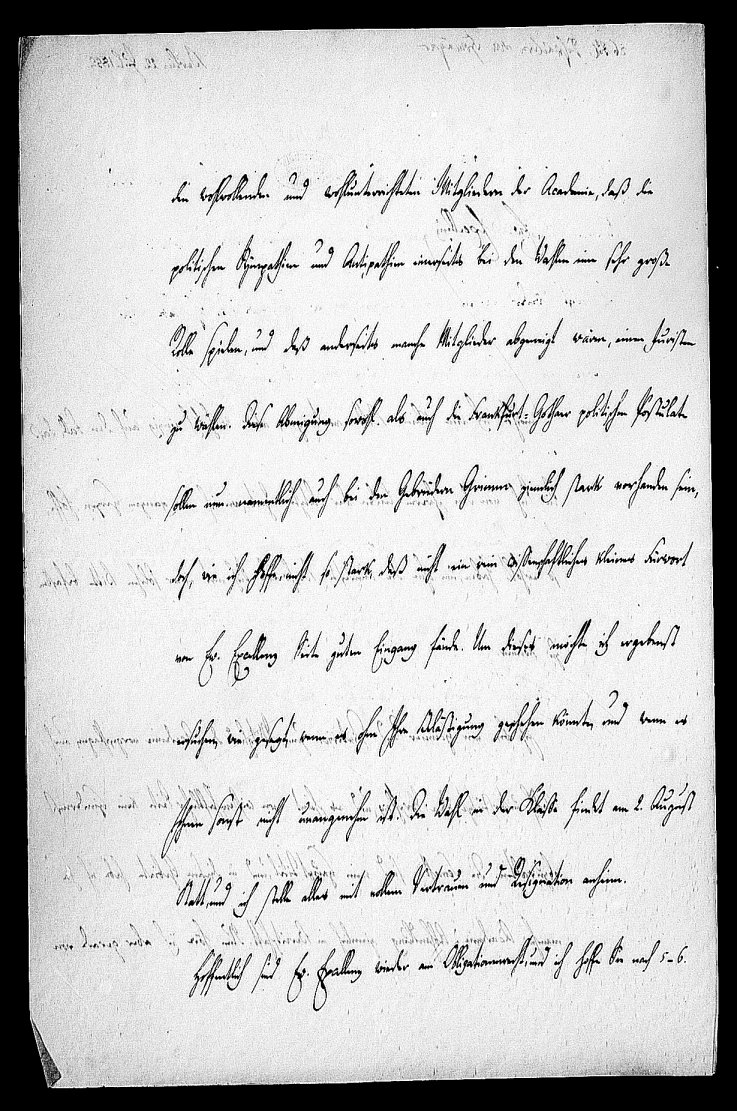 den wohlwollenden und wohlunterrichteten Mitgliedern der Academie, daß die
politischen Sympathien und Antipathien einerseits bei den Wahlen eine sehr große
Rolle spielen, und daß anderseits manche Mitglieder abgeneigt wären, einen Juristen
zu wählen. Diese Abneigung sowohl als auch die Frankfurt-Gothaer politischen Postulate
sollen nun namentlich auch bei den Gebrüdern Grimm ziemlich stark vorhanden sein,
doch, wie ich hoffe, nicht so stark, daß nicht ein rein wissenschaftliches kleines Fürwort
von Ew. Excellenz Seite guten Eingang fände. Um dieses möchte ich ergebenst
ersuchen, wie gesagt wenn es ohne Ihre Belästigung geschehen könnte, und wenn es
Ihnen sonst nicht unangenehm ist. Die Wahl in der Klasse findet am 2. August
Statt, und ich stelle alles mit vollem Vertrauen und Resignation anheim.
Hoffentlich sind Ew. Excellenz wieder am Obligationenrecht, und ich hoffe Sie nach 5-6.